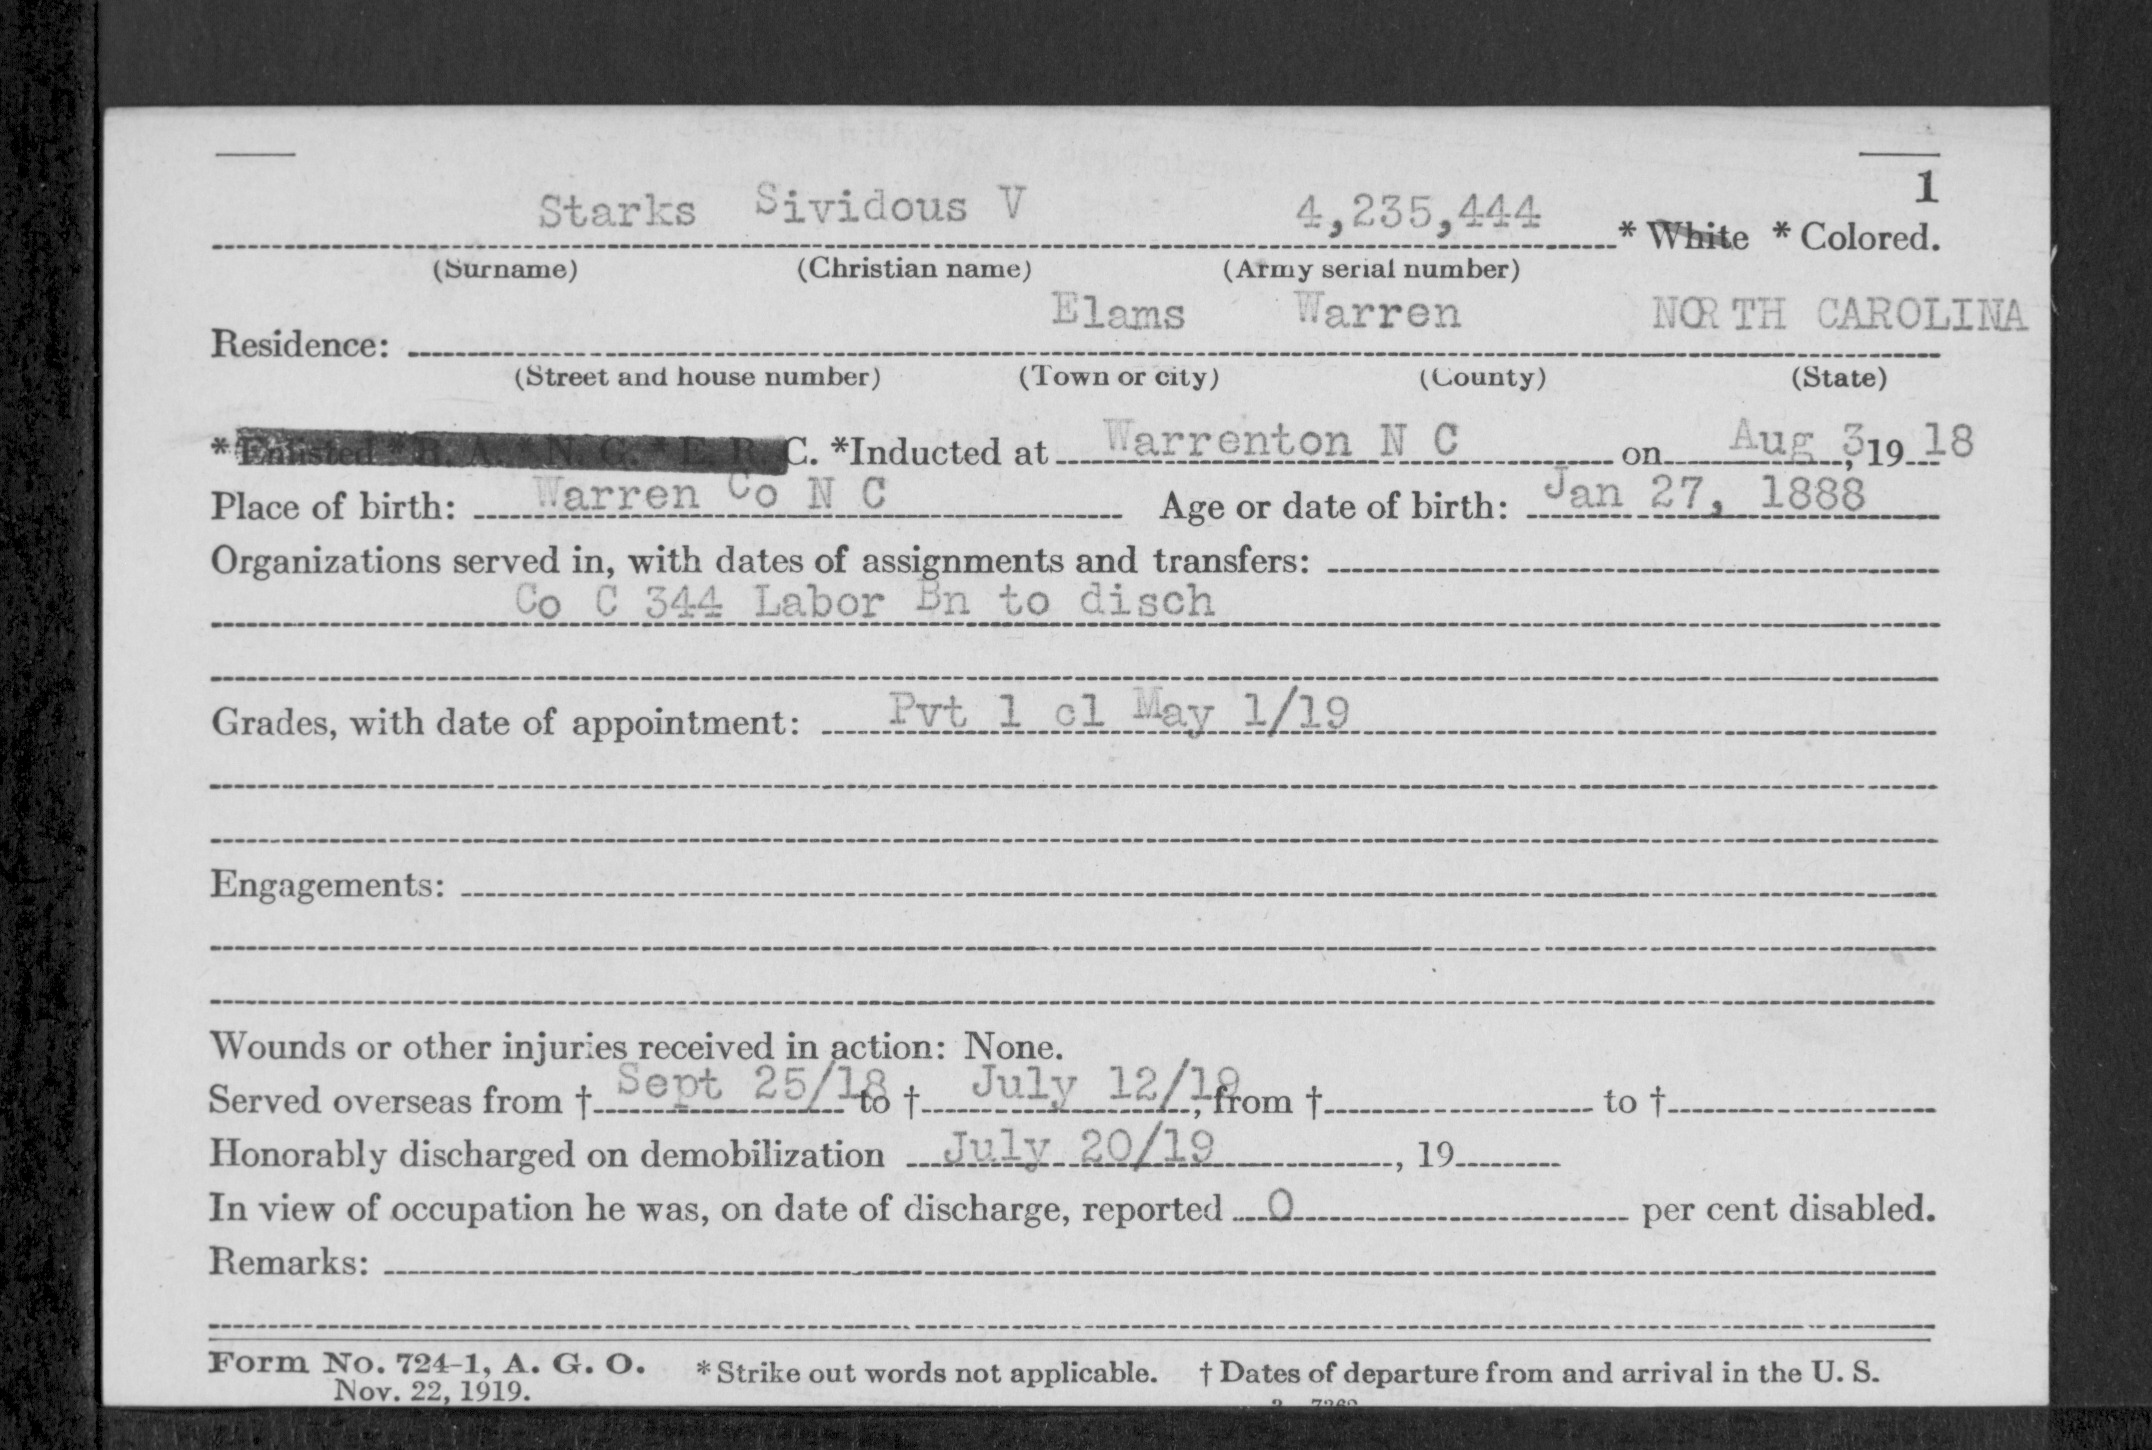 1
Starks Sividous V 4,235,444 * White * Colored.
(Surname) (Christian name) (Army serial number)
Elams Warren NORTH CAROLINA
Residence:
(Street and house number) (Town or city) (County) (State)
* Enlisted * R. A. * N. G. * E. R. C. *Inducted at Warrenton N C on Aug 3, 19 18
Place of birth: Warren Co N C Age or date of birth: Jan 27, 1888
Organizations served in, with dates of assignments and transfers:
Co C 344 Labor Bn to disch
Grades, with date of appointment: Pvt 1 cl May 1/19
Engagements:
Wounds or other injuries received in action: None.
Served overseas from † Sept 25/18 to † July 12/19, from † to †
Honorably discharged on demobilization July 20/19, 19
In view of occupation he was, on date of discharge, reported 0 per cent disabled.
Remarks:
Form No. 724-1, A. G. O. * Strike out words not applicable. † Dates of departure from and arrival in the U. S.
Nov. 22, 1919.